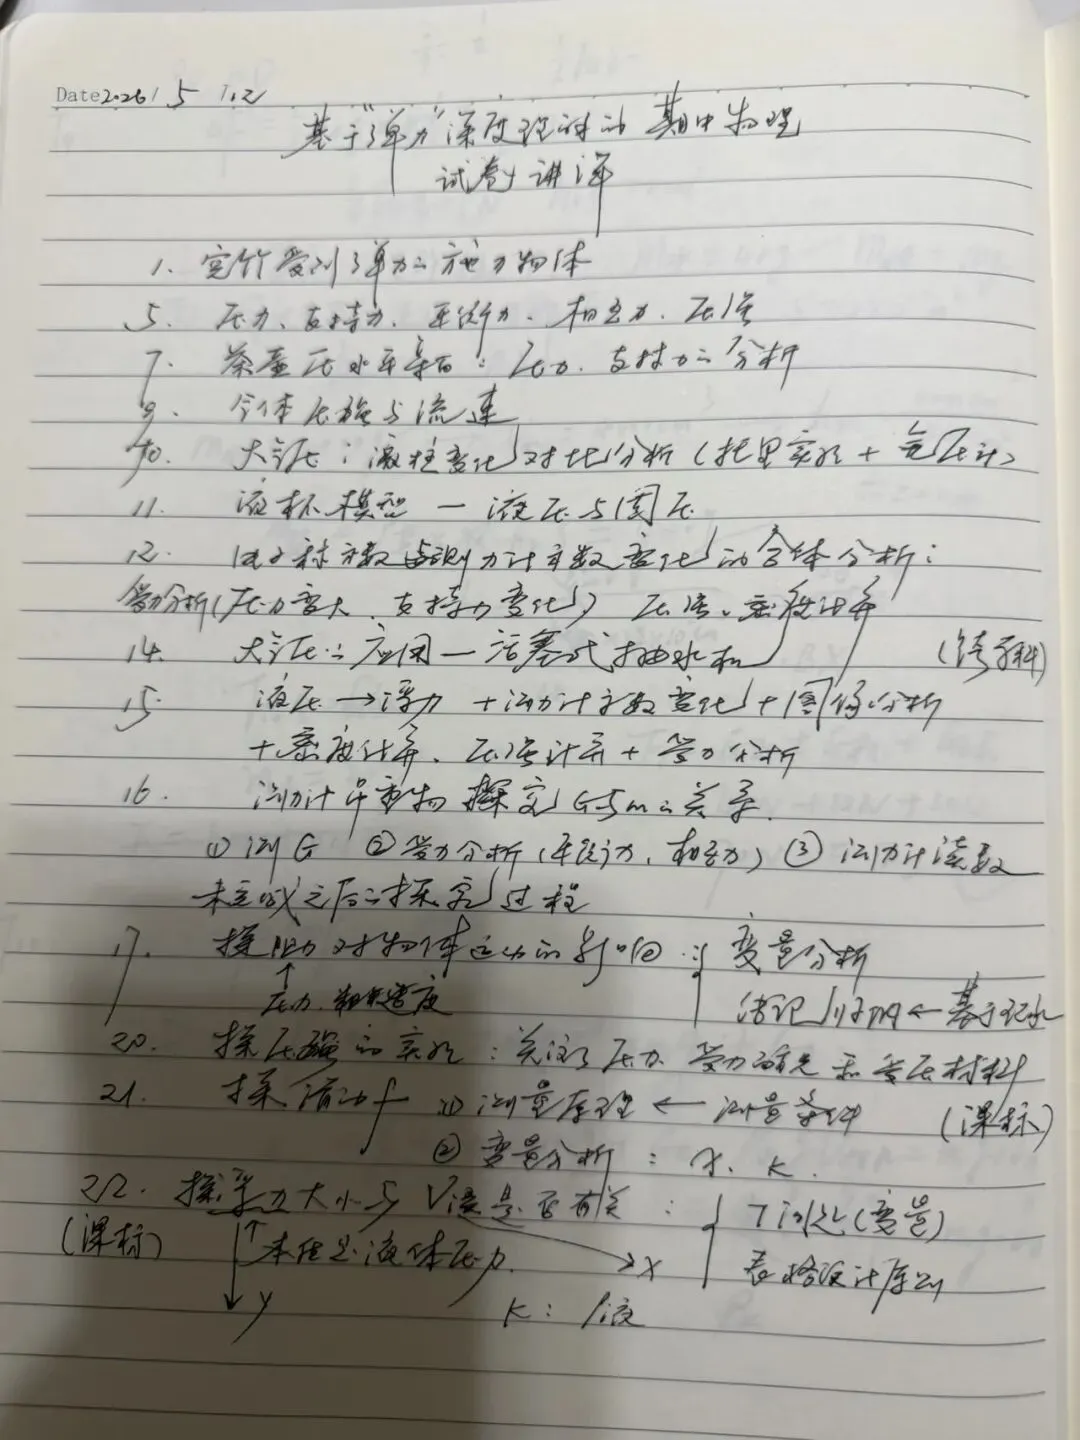 Date 2026 / 5 / 12
基于"弹力"深度理解的期中物理
试卷讲评
1. 空竹受到弹力的施力物体
5. 压力、支持力、平衡力、相互力、压强
7. 茶壶压水平桌面:压力、支持力的分析
9. 气体压强与流速
10. 大气压:液柱变化对比分析(托里实验+气压计)
11. 液杯模型—液压与固压
12. 电子秤示数与测力计示数变化的整体分析:
受力分析(压力变大、支持力变化) 压强、密度计算
14. 大气压的应用—活塞式抽水机 (跨学科)
15. 液压→浮力+测力计示数变化+图像分析
+密度计算、压强计算+受力分析
16. 测力计吊重物 探究G与m的关系.
①测G ②受力分析(平衡力、相互力) ③测力计读数
未完成之后的探究过程
17. 探阻力对物体运动的影响: 变量分析
↑
压力、粗糙程度 结论归纳←基于现象
20. 探压强的实验:关注了压力、受力面积和受压材料
21. 探滑动f ①测量原理←测量条件 (课标)
②变量分析:X、K.
22. 探浮力大小与V浸是否有关: 7测处(变量)
(课标) ↑本质是液体压力. →X 表格设计原则
↓y K:ρ液